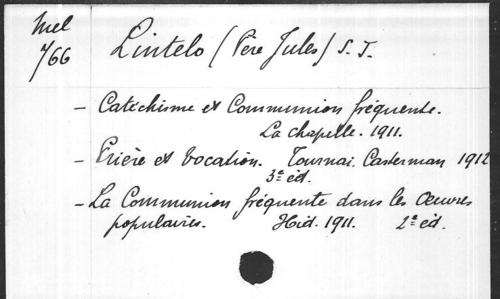 Mel
766
Lintelo (Père Jules) S. J.
- Catéchisme et Communion fréquente.
La chapelle. 1911.
- Prière et Vocation. Tournai. Casterman 1912
3e éd.
- La Communion fréquente dans les Œuvres
populaires. Ibid. 1911. 2e éd.